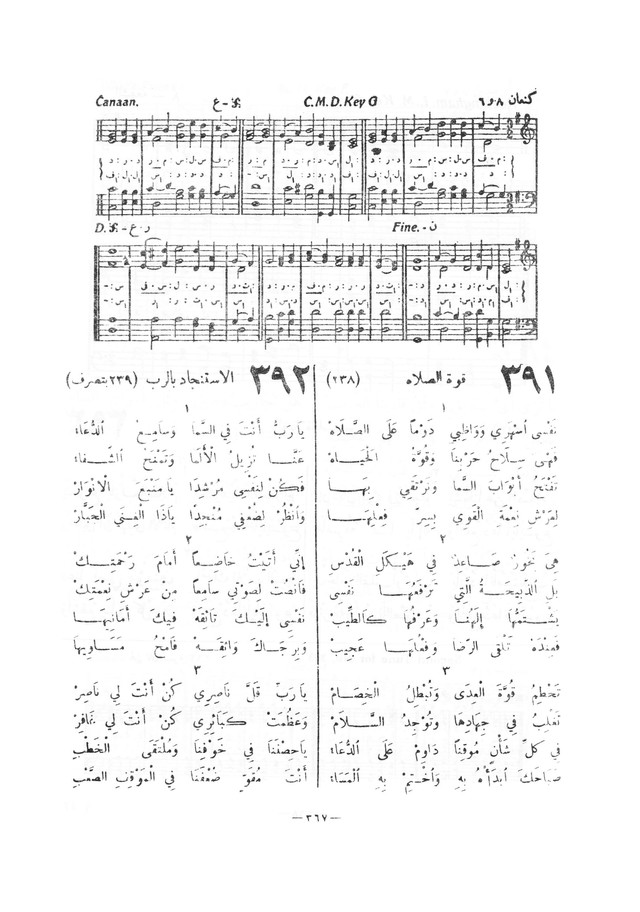 كنعان ٨ و٦ C.M.D. Key G 𝄋 - ع Canaan.
ن - Fine. ر ع - D. 𝄋.
٣٩١ قوة الصلاه (٢٣٨)
١
نَفْسِي اسْهَرِي وَوَاظِبِي دَوْماً عَلَى الصَّلَاهْ
فَهْيَ سِلَاحُ حَرْبِنَا وَقُوَّةُ الْحَيَاهْ
تَفْتَحُ أَبْوَابَ السَّمَا وَنَرْتَقِي بِهَا
لِعَرْشِ نِعْمَةِ الْقَوِي بِسِرِّ فِعْلِهَا
٢
هِيَ بَخُورٌ صَاعِدٌ فِي هَيْكَلِ الْقُدْسِ
بَلِ الذَّبِيحَةُ الَّتِي تَرْفَعُهَا نَفْسِي
يَشْتَمُّهَا إِلٰهُنَا وَعَرْفُهَا كَالطِّيبْ
فَعِنْدَهُ تَلْقَى الرِّضَا وَفِعْلُهَا عَجِيبْ
٣
تَحْطِمُ قُوَّةَ الْعِدَى وَتُبْطِلُ الْخِصَامْ
تَغْلِبُ فِي جِهَادِهَا وَتُوجِدُ السَّلَامْ
فِي كُلِّ شَأْنٍ مُوقِناً دَاوِمْ عَلَى الدُّعَاءْ
صَبَاحَكَ ابْدَأْهُ بِهِ وَاخْتِمْ بِهِ الْمَسَاءْ
٣٩٢ الاستنجاد بالرب (٢٣٩ بتصرف)
١
يَا رَبُّ أَنْتَ فِي السَّمَا وَسَامِعُ الدُّعَاءْ
عَنَّا تُزِيلُ الْأَلَمَا وَتَمْنَحُ الشِّفَاءْ
فَكُنْ لِنَفْسِي مُرْشِدًا يَا مَنْبَعَ الْأَنْوَارْ
وَانْظُرْ لِضَعْفِي مُنْجِدًا يَاذَا الْغَنِيُّ الْجَبَّارْ
٢
إِنِّي أَتَيْتُ خَاضِعاً أَمَامَ رَحْمَتِكْ
فَانْصُتْ لِصَوْتِي سَامِعاً مِنْ عَرْشِ نِعْمَتِكْ
نَفْسِي إِلَيْكَ تَائِقَهْ فِيكَ أَمَانِيهَا
وَبِرَجَاكَ وَاثِقَهْ فَامْحُ مَسَاوِيهَا
٣
يَا رَبِّ قَلَّ نَاصِرِي كُنْ أَنْتَ لِي نَاصِرْ
وَعَظُمَتْ كَبَائِرِي كُنْ أَنْتَ لِي غَافِرْ
يَا حِصْنَنَا فِي خَوْفِنَا وَمُلْتَقَى الْخَطْبِ
أَنْتَ مُقَوِّ ضَعْفِنَا فِي الْمَوْقِفِ الصَّعْبِ
— ٣٦٧ —